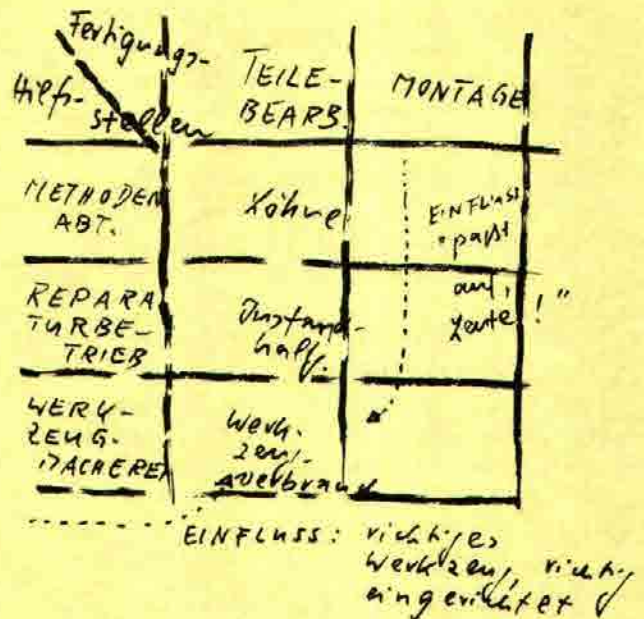 Fertigungs-
Hilfs-
stellen
TEILE-
BEARB.
MONTAGE
METHODEN
ABT.
Löhne
EINFLUSS
"paßt
auf,
Leute!"
REPARA
TURBE-
TRIEB
Instand-
half.
WERK-
ZEUG-
MACHEREI
Werk-
zeug-
verbrauch
EINFLUSS: richtiges
Werkzeug, richtig
eingerichtet